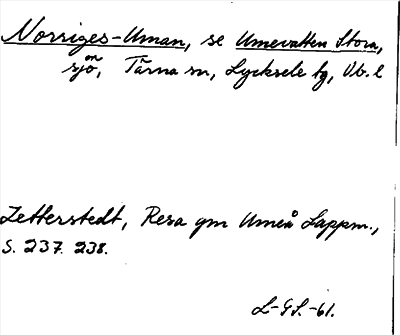 Norriges-Uman, se Umevatten Stora,
sjön, Tärna sn, Lycksele lg, Vb. l
Zetterstedt, Resa gm Umeå Lappm.,
S. 237. 238.
L-GS.-61.